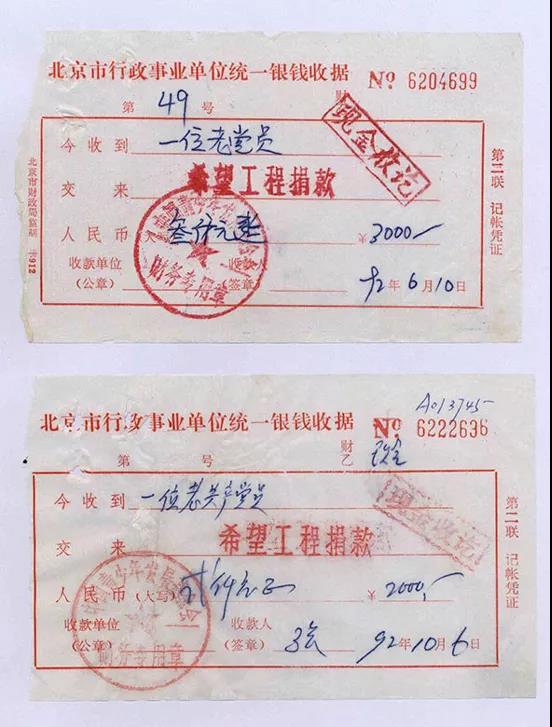 北京市行政事业单位统一银钱收据 № 6204699
第 49 号 财
现金收讫
今收到 一位老党员
交来 希望工程捐款
人民币(大写) 叁仟元整 ¥3000
收款单位(公章) (签章) 92年6月10日
财务专用章
第二联 记帐凭证
北京市财政局监制
A013745
北京市行政事业单位统一银钱收据 № 6222696
第 号 财乙
现金收讫
今收到 一位老共产党员
交来 希望工程捐款
人民币(大写) 贰仟元正 ¥2000
收款单位(公章) 收款人(签章) 92年10月6日
中国青少年发展基金会
财务专用章
第二联 记帐凭证